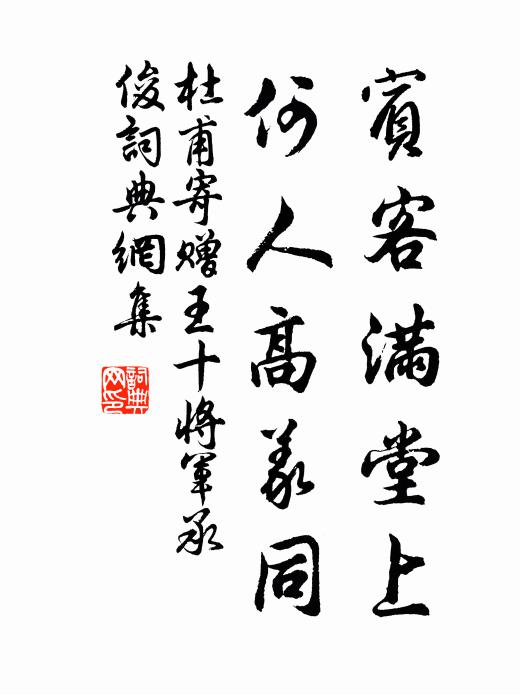 賓客滿堂上
何人高義同
杜甫寄贈王十將軍承
俊詞典網集
詞典
网印